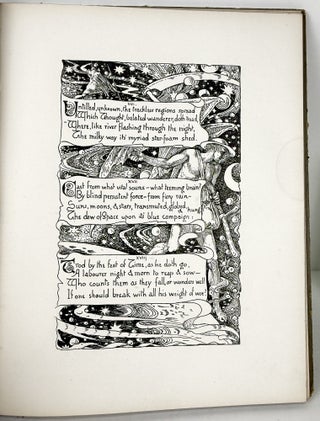 XVI
Untilled, unknown, the trackless regions spread
Which Thought, belated wanderer, doth tread
Where, like river flashing through the night,
The milky way its myriad star-foam shed.
XVII
Cast from what vital source – what teeming brain?
By blind persistent force – from fiery rain –
Suns, moons, & stars, transmuted, globed, & hung
The dew of Space upon its blue campaign:
XVIII
Trod by the feet of Time, as he doth go,
A labourer night & morn to reap & sow –
Who counts them as they fall, or wonders well
If one should break with all his weight of woe?